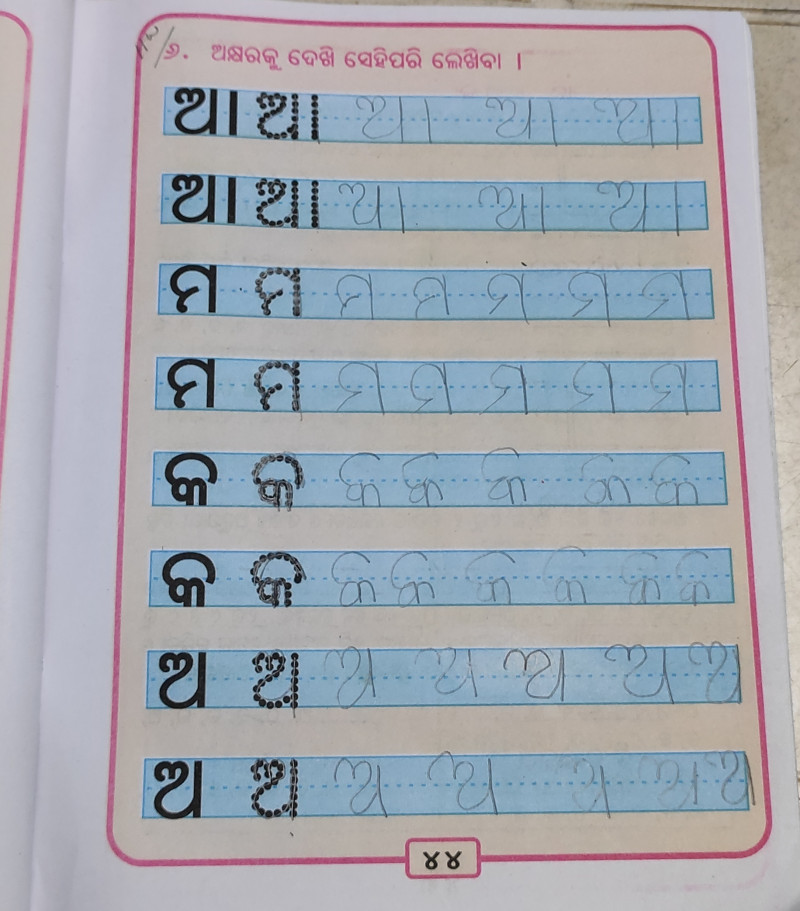 H/W
୬. ଅକ୍ଷରକୁ ଦେଖି ସେହିପରି ଲେଖିବା ।
ଆ ଆ ଆ ଆ ଆ
ଆ ଆ ଆ ଆ ଆ
ମ ମ ମ ମ ମ ମ ମ
ମ ମ ମ ମ ମ ମ ମ
କ କ କ କ କ କ କ
କ କ କ କ କ କ କ କ
ଅ ଅ ଅ ଅ ଅ ଅ ଅ
ଅ ଅ ଅ ଅ ଅ ଅ ଅ
୪୪